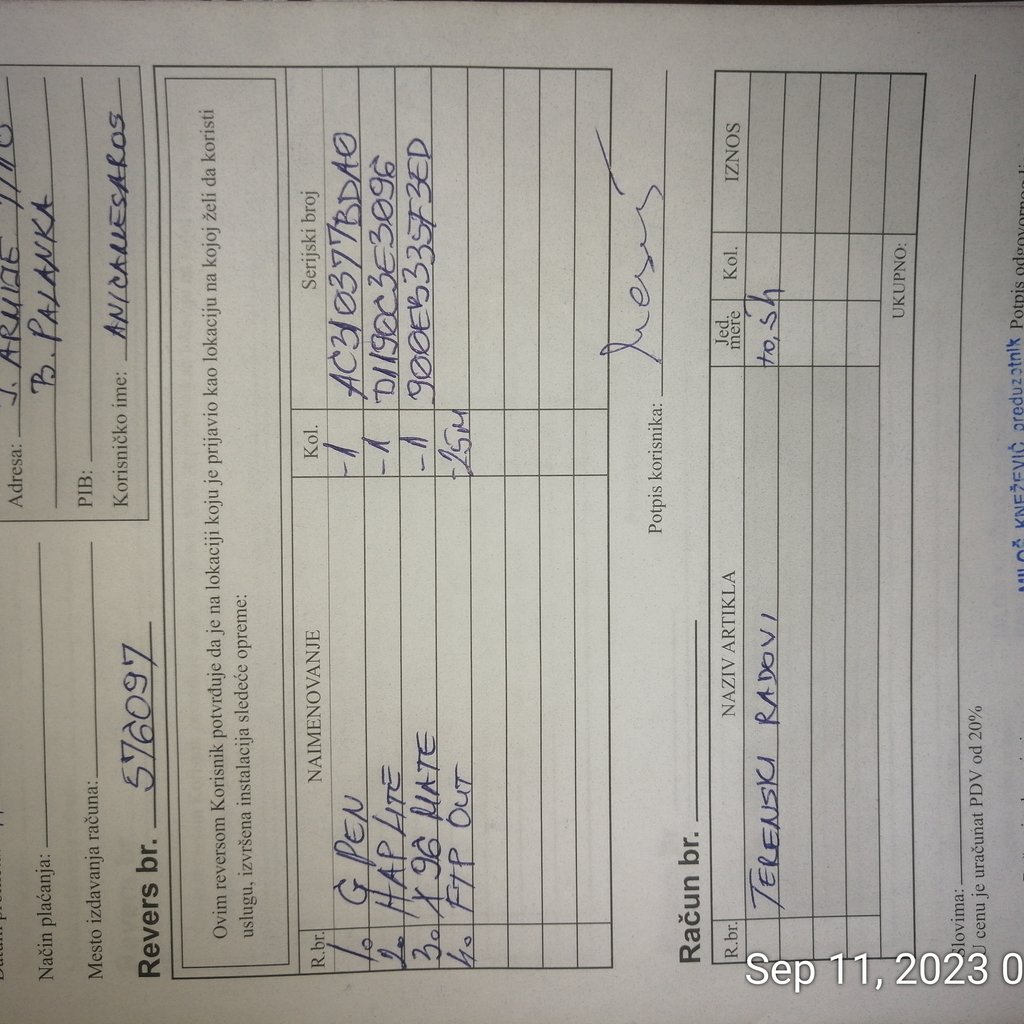 Adresa: J. ARMIJE
B. PALANKA
PIB:
Korisničko ime: ANICAMESAROS
Način plaćanja:
Mesto izdavanja računa:
Revers br. 576097
Ovim reversom Korisnik potvrđuje da je na lokaciji koju je prijavio kao lokaciju na kojoj želi da koristi
uslugu, izvršena instalacija sledeće opreme:
R.br. NAIMENOVANJE Kol. Serijski broj
1. G PEN -1 AC310377BDA0
2. HAP LITE -1 D1190C3E3096
3. X96 MATE -1 900EB33573ED
4. FTP OUT -25M
Potpis korisnika:
Račun br.
R.br. NAZIV ARTIKLA Jed. mere Kol. IZNOS
TERENSKI RADOVI
UKUPNO:
Slovima:
U cenu je uračunat PDV od 20%
MILOŠ KNEŽEVIĆ preduzetnik
Potpis odgovornog
Sep 11, 2023 0